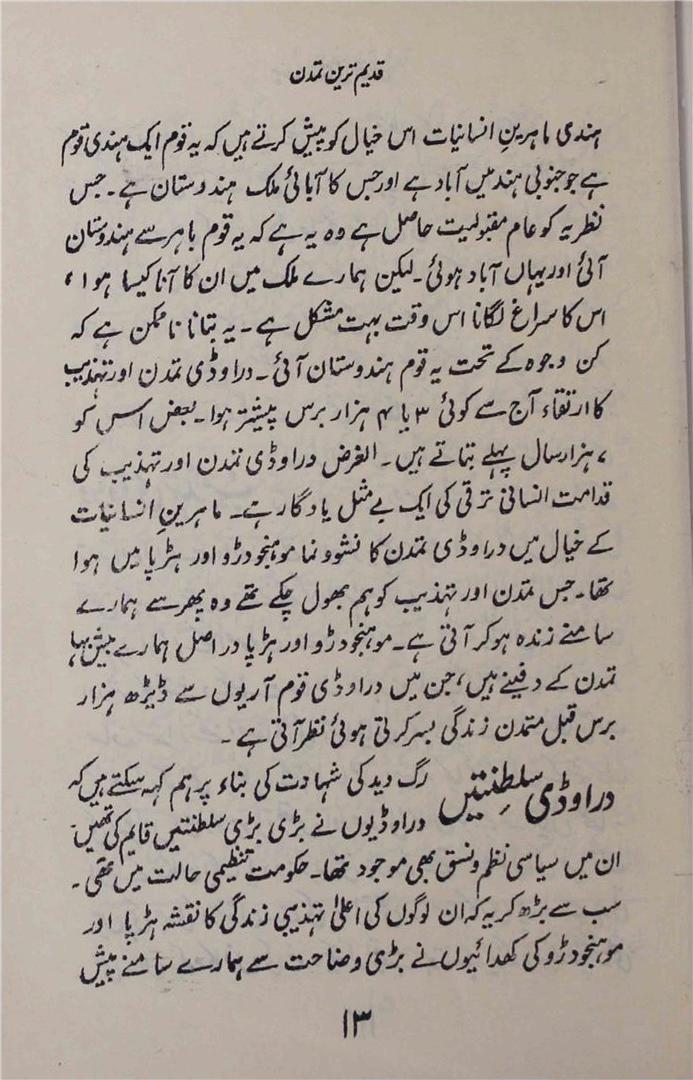 قدیم ترین تمدن
ہندی ماہرینِ انسانیات اس خیال کو پیش کرتے ہیں کہ یہ قوم ایک ہندی قوم
ہے جو جنوبی ہند میں آباد ہے اور جس کا آبائی ملک ہندوستان ہے۔ جس
نظریہ کو عام مقبولیت حاصل ہے وہ یہ ہے کہ یہ قوم باہر سے ہندوستان
آئی اور یہاں آباد ہوئی۔ لیکن ہمارے ملک میں ان کا آنا کیسا ہوا،
اس کا سراغ لگانا اس وقت بہت مشکل ہے۔ یہ بتانا ناممکن ہے کہ
کن وجوہ کے تحت یہ قوم ہندوستان آئی۔ دراوڈی تمدن اور تہذیب
کا ارتقاء آج سے کوئی ۳ یا ۴ ہزار برس پیشتر ہوا۔ بعض اس کو
۷ ہزار سال پہلے بتاتے ہیں۔ الغرض دراوڈی تمدن اور تہذیب کی
قدامت انسانی ترقی کی ایک بے مثل یادگار ہے۔ ماہرینِ انسانیات
کے خیال میں دراوڈی تمدن کا نشوونما موہنجوڈرو اور ہڑپا میں ہوا
تھا۔ جس تمدن اور تہذیب کو ہم بھول چکے تھے وہ پھر سے ہمارے
سامنے زندہ ہو کر آتی ہے۔ موہنجوڈرو اور ہڑپا دراصل ہمارے بیش بہا
تمدن کے دفینے ہیں، جن میں دراوڈی قوم آریوں سے ڈیڑھ ہزار
برس قبل متمدن زندگی بسر کرتی ہوئی نظر آتی ہے۔
دراوڈی سلطنتیں رگ دید کی شہادت کی بناء پر ہم کہہ سکتے ہیں کہ
دراوڈیوں نے بڑی بڑی سلطنتیں قایم کی تھیں۔
ان میں سیاسی نظم و نسق بھی موجود تھا۔ حکومت تنظیمی حالت میں تھی۔
سب سے بڑھ کر یہ کہ ان لوگوں کی اعلیٰ تہذیبی زندگی کا نقشہ ہڑپا اور
موہنجوڈرو کی کھدائیوں نے بڑی وضاحت سے ہمارے سامنے پیش
۱۳